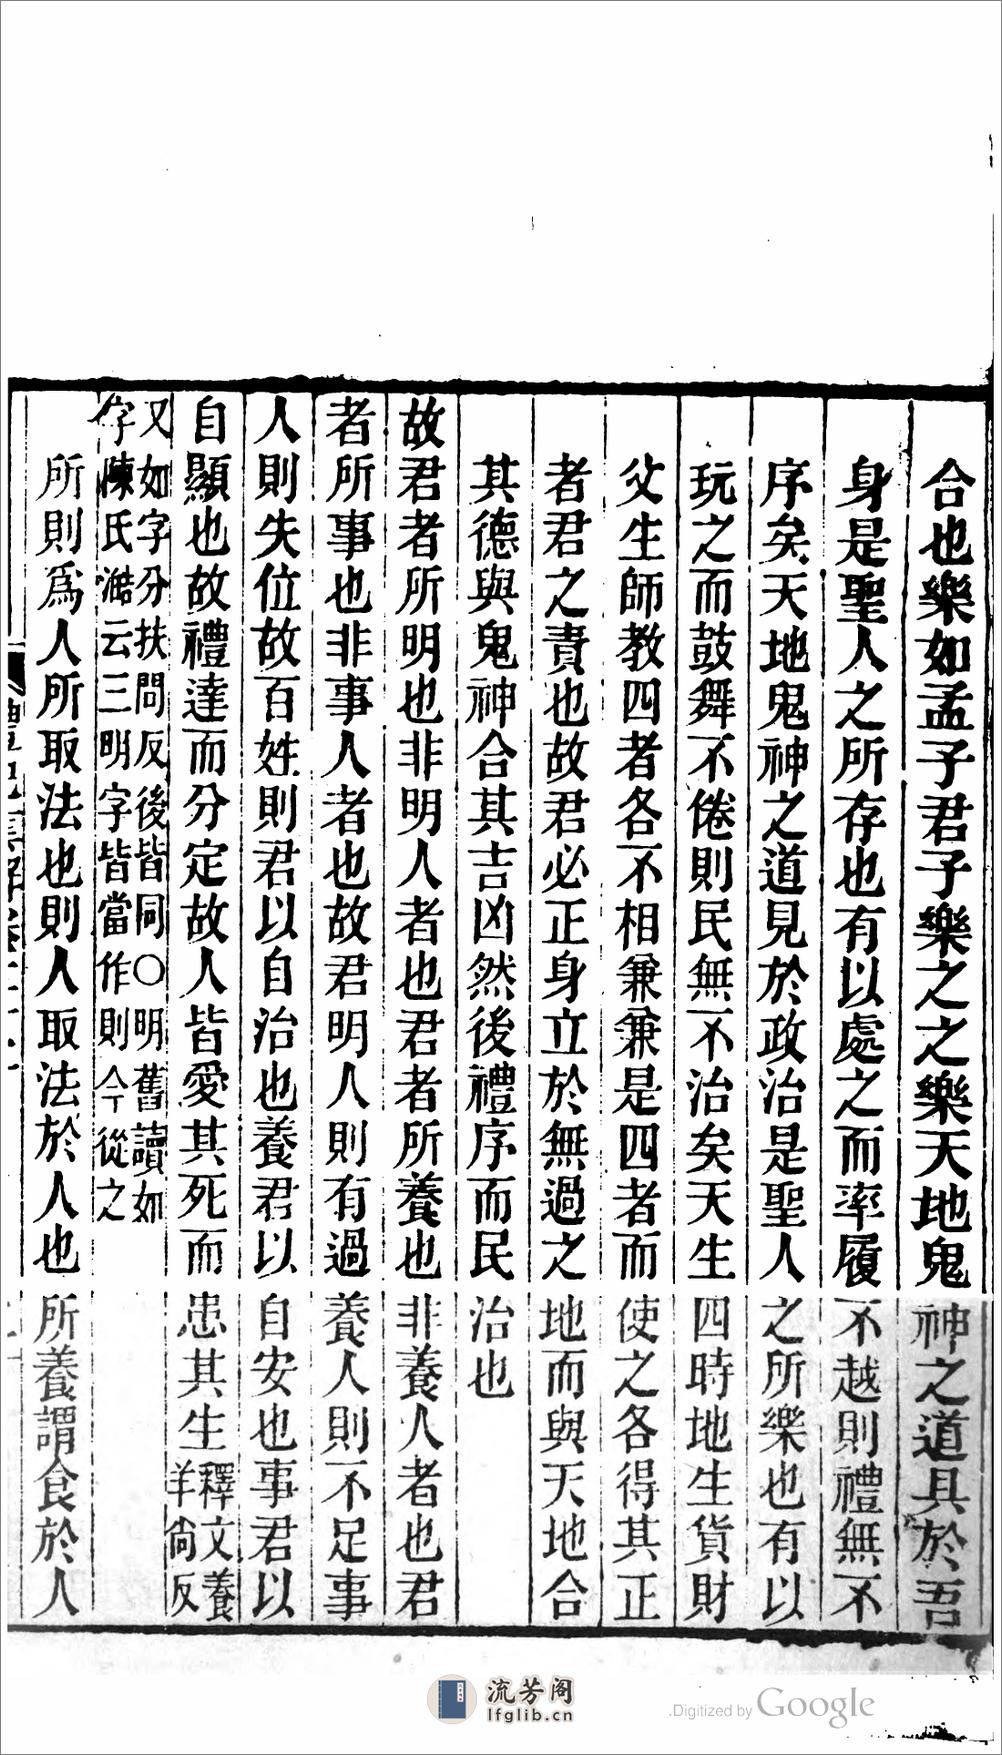 合也樂如孟子君子樂之之樂天地鬼神之道具於吾
身是聖人之所存也有以處之而率履不越則禮無不
序矣天地鬼神之道見於政治是聖人之所樂也有以
玩之而鼓舞不倦則民無不治矣天生四時地生貨財
父生師教四者各不相兼兼是四者而使之各得其正
者君之責也故君必正身立於無過之地而與天地合
其德與鬼神合其吉凶然後禮序而民治也
故君者所明也非明人者也君者所養也非養人者也君
者所事也非事人者也故君明人則有過養人則不足事
人則失位故百姓則君以自治也養君以自安也事君以
自顯也故禮達而分定故人皆愛其死而患其生釋文養
羊尙反
又如字分扶問反後皆同○明舊讀如
字陳氏澔云三明字皆當作則今從之
所則爲人所取法也則人取法於人也所養謂食於人
流芳阁
lfglib.cn
Digitized by Google